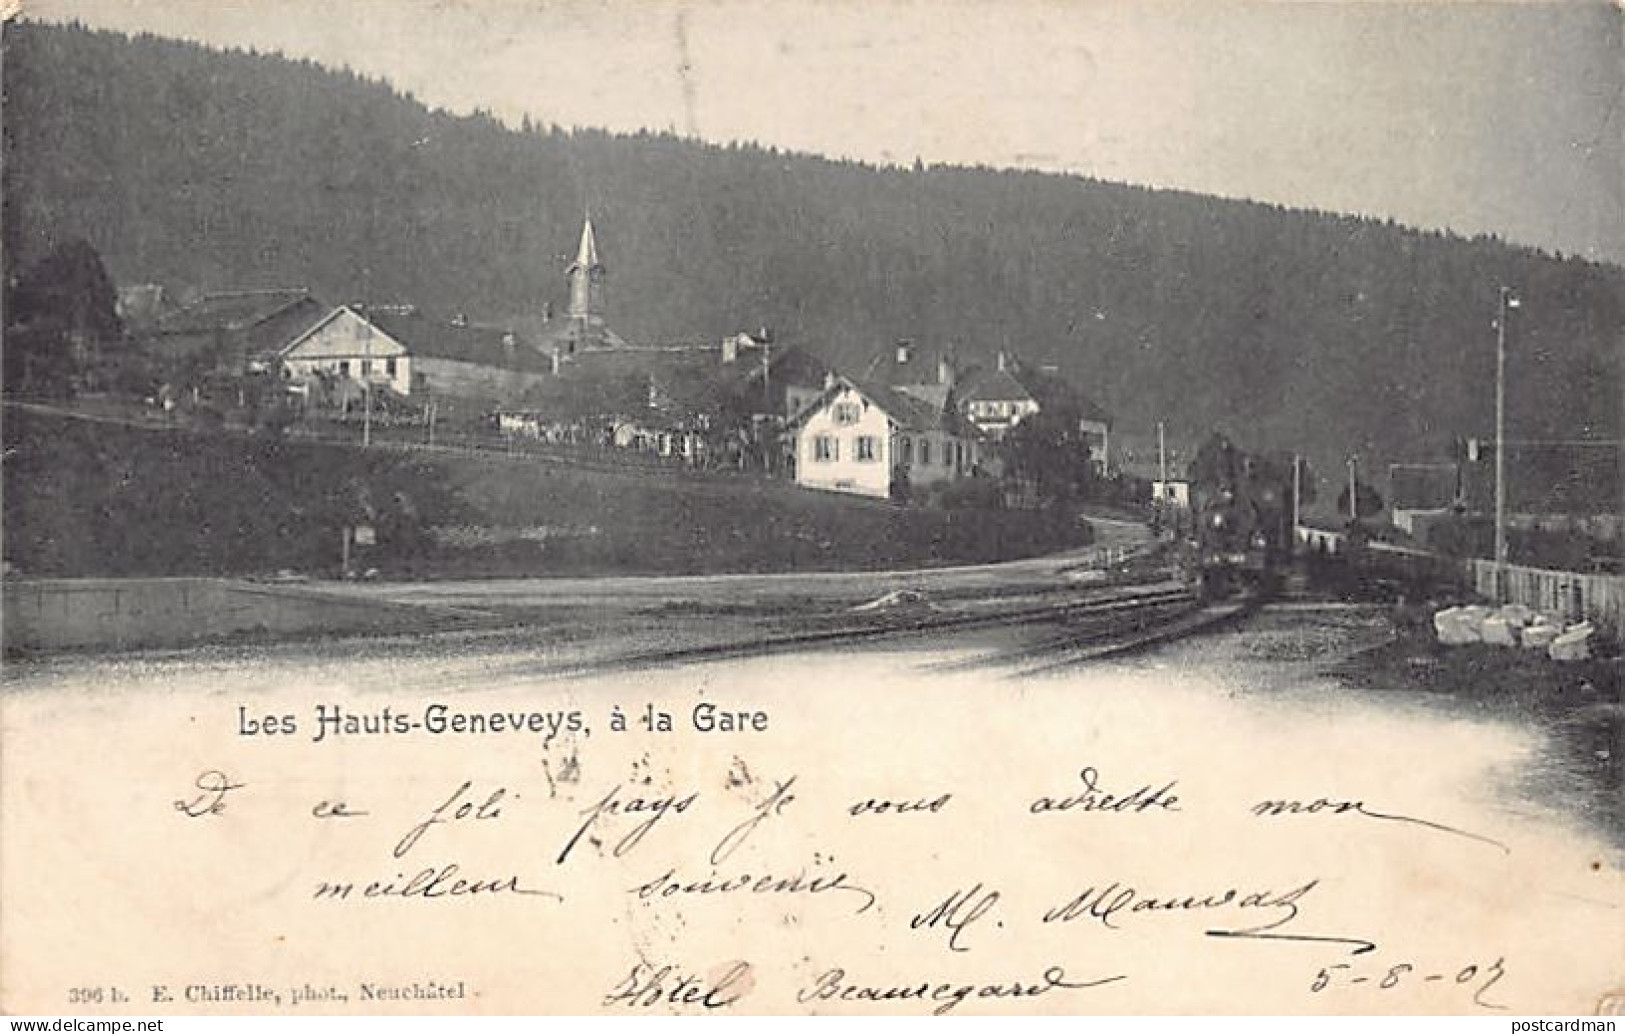 Les Hauts-Geneveys, à la Gare
De ce joli pays je vous adresse mon
meilleur souvenir
M.
Hôtel Beauregard 5-8-02
396 b. E. Chiffelle, phot., Neuchâtel
postcardman